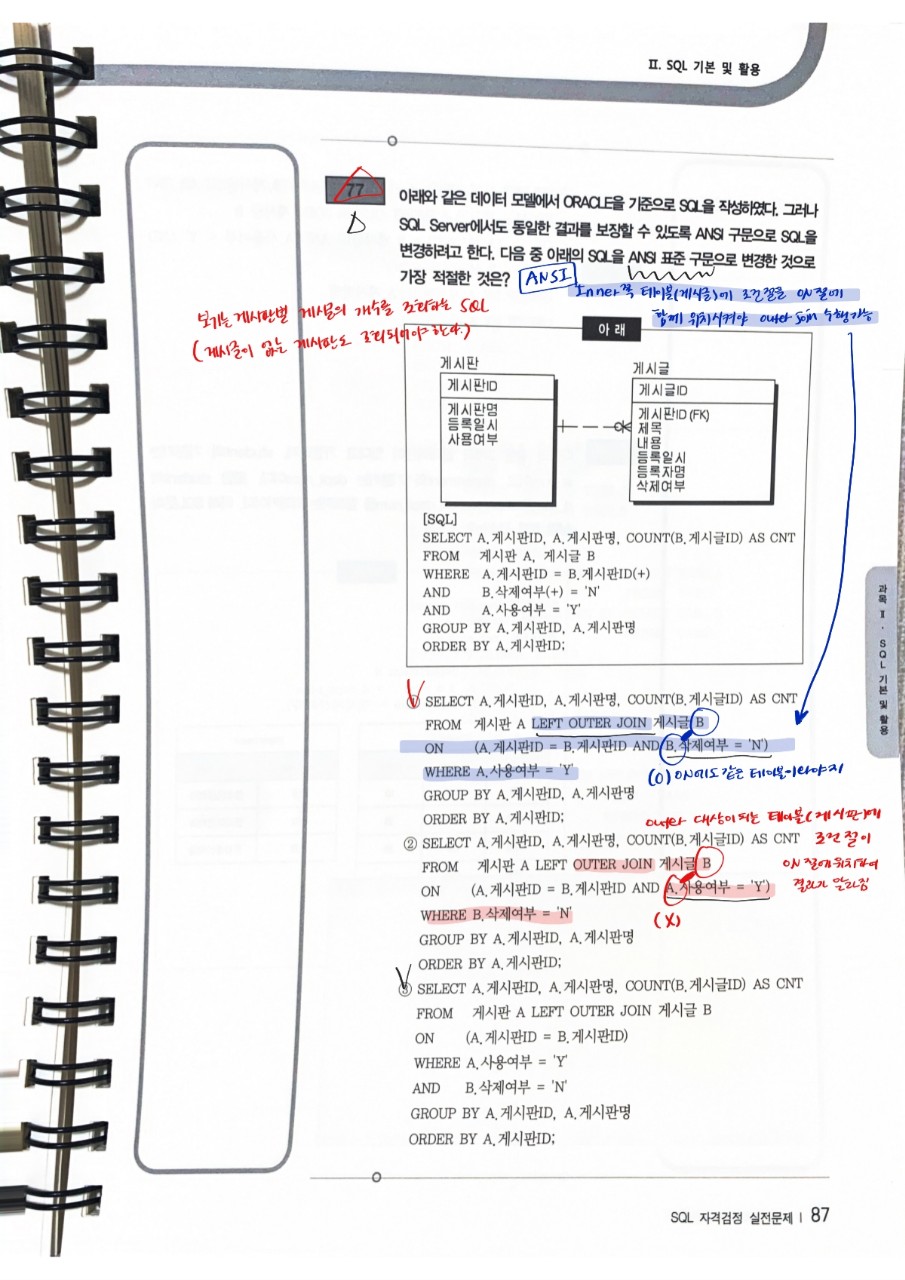 II. SQL 기본 및 활용
77
아래와 같은 데이터 모델에서 ORACLE을 기준으로 SQL을 작성하였다. 그러나
SQL Server에서도 동일한 결과를 보장할 수 있도록 ANSI 구문으로 SQL을
변경하려고 한다. 다음 중 아래의 SQL을 ANSI 표준 구문으로 변경한 것으로
가장 적절한 것은?
ANSI
Inner쪽 테이블(게시글)에 조건절을 ON절에
함께 위치시켜야 outer join 수행가능
보기는 게시판별 게시글의 개수를 조회하는 SQL
(게시글이 없는 게시판도 조회되어야 한다.)
아 래
게시판
게시판ID
게시판명
등록일시
사용여부
게시글
게시글ID
게시판ID (FK)
제목
내용
등록일시
등록자명
삭제여부
[SQL]
SELECT A.게시판ID, A.게시판명, COUNT(B.게시글ID) AS CNT
FROM 게시판 A, 게시글 B
WHERE A.게시판ID = B.게시판ID(+)
AND B.삭제여부(+) = 'N'
AND A.사용여부 = 'Y'
GROUP BY A.게시판ID, A.게시판명
ORDER BY A.게시판ID;
① SELECT A.게시판ID, A.게시판명, COUNT(B.게시글ID) AS CNT
FROM 게시판 A LEFT OUTER JOIN 게시글 B
ON (A.게시판ID = B.게시판ID AND B.삭제여부 = 'N')
WHERE A.사용여부 = 'Y'
(O) ON에도 같은 테이블이라야지
GROUP BY A.게시판ID, A.게시판명
ORDER BY A.게시판ID;
outer 대상이 되는 테이블(게시판)에
조건절이
ON절에 위치하여
결과가 달라짐
② SELECT A.게시판ID, A.게시판명, COUNT(B.게시글ID) AS CNT
FROM 게시판 A LEFT OUTER JOIN 게시글 B
ON (A.게시판ID = B.게시판ID AND A.사용여부 = 'Y')
WHERE B.삭제여부 = 'N'
(X)
GROUP BY A.게시판ID, A.게시판명
ORDER BY A.게시판ID;
③ SELECT A.게시판ID, A.게시판명, COUNT(B.게시글ID) AS CNT
FROM 게시판 A LEFT OUTER JOIN 게시글 B
ON (A.게시판ID = B.게시판ID)
WHERE A.사용여부 = 'Y'
AND B.삭제여부 = 'N'
GROUP BY A.게시판ID, A.게시판명
ORDER BY A.게시판ID;
과목 II · SQL 기본 및 활용
SQL 자격검정 실전문제 | 87